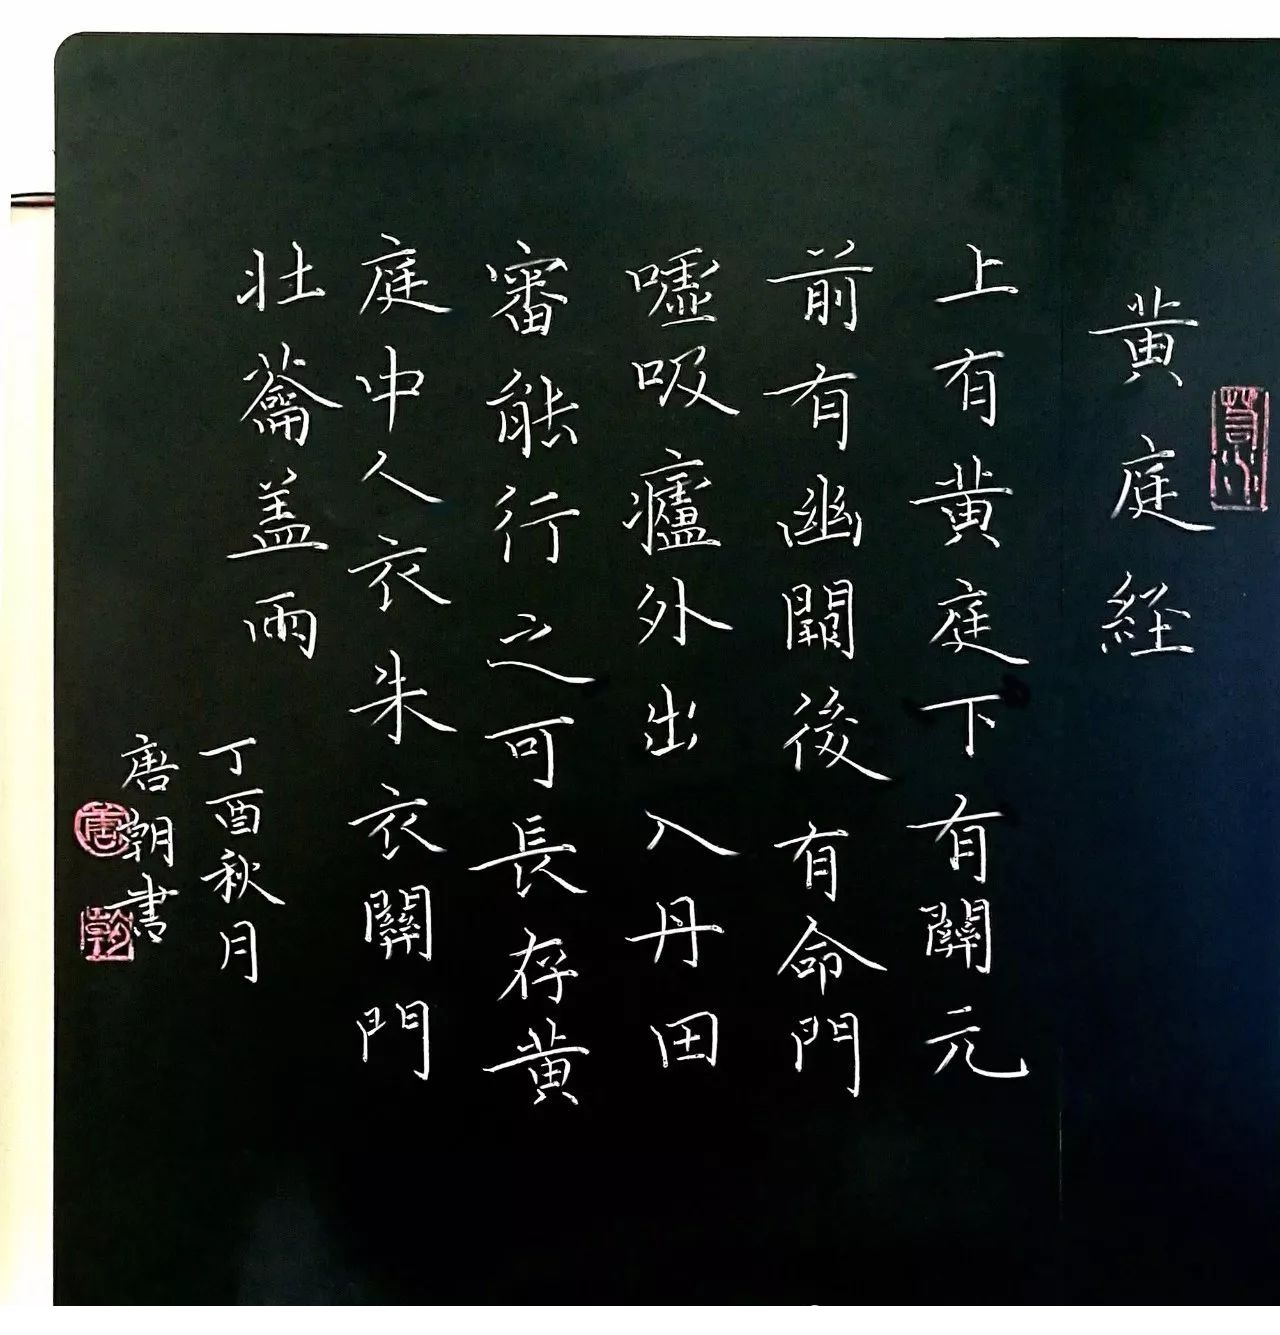 黄庭经
上有黄庭下有關元
前有幽闕後有命門
嘘吸廬外出入丹田
審能行之可長存黄
庭中人衣朱衣關門
壮蘥盖兩
丁酉秋月
唐朝書